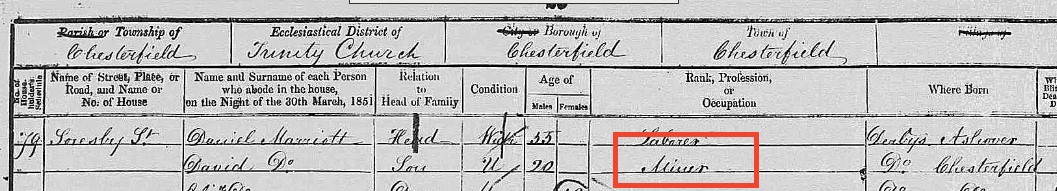 Parish or Township of
Chesterfield
Ecclesiastical District of
Trinity Church
City or Borough of
Chesterfield
Town of
Chesterfield
Village of
No. of House-holder's Schedule
Name of Street, Place, or Road, and Name or No. of House
Name and Surname of each Person who abode in the house, on the Night of the 30th March, 1851
Relation to Head of Family
Condition
Age of
Males Females
Rank, Profession, or Occupation
Where Born
79 Soresby St Daniel Marriott Head 55 Laborer Derbys Ashover
David Do Son U 20 Miner Do Chesterfield